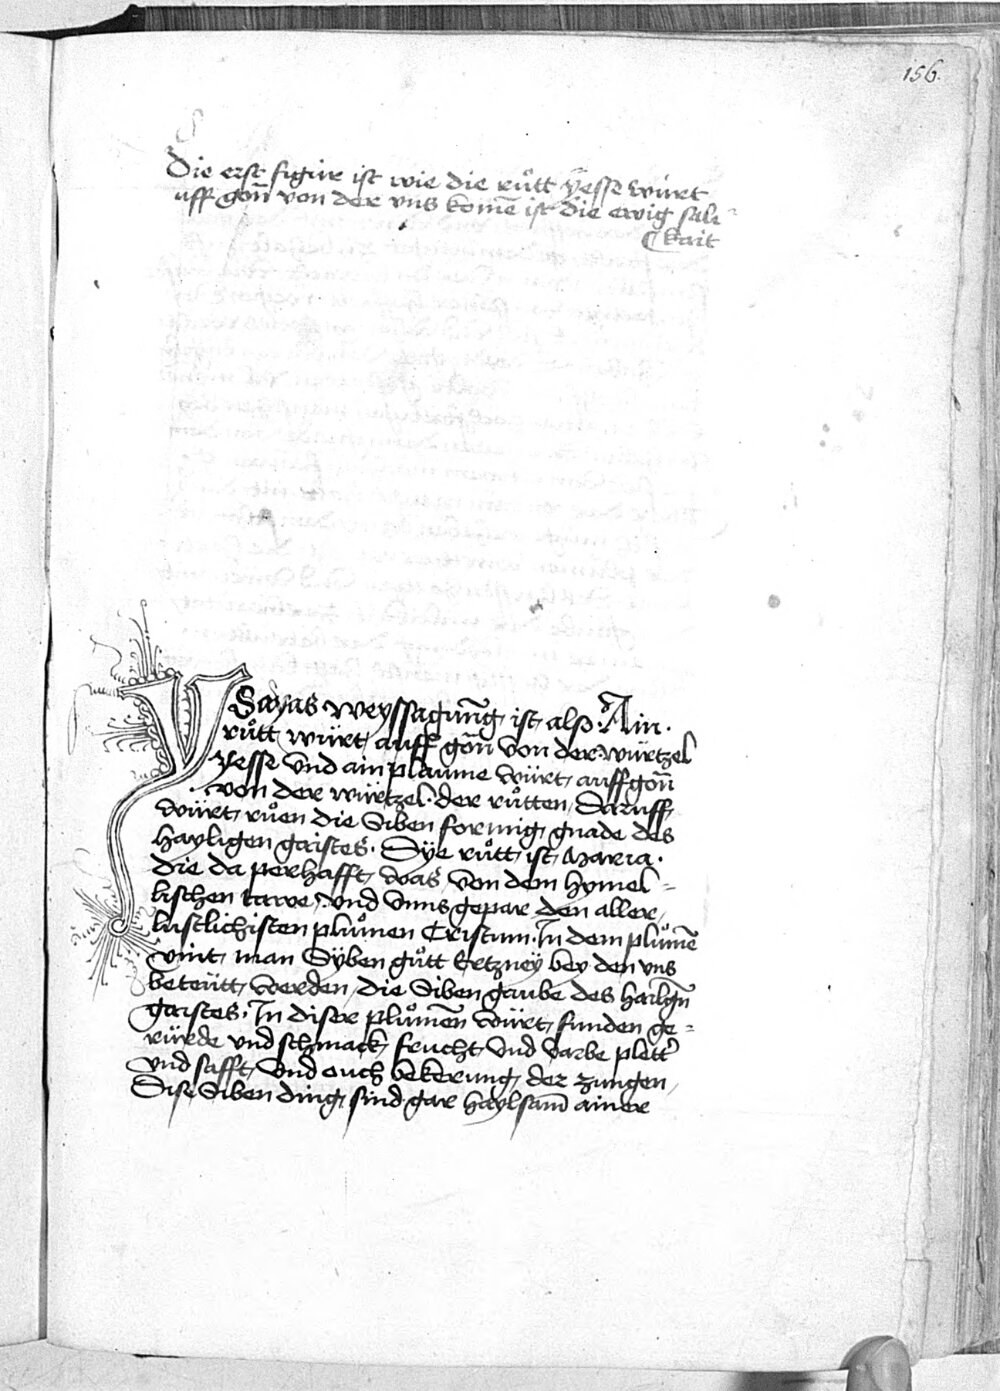 156.
Die erst figur ist wie die ruͦtt yesse wúrt
uff gon̄ von der vns komē ist die ewig sali
kait
YSayas weyssagūng ist also. Ain.
ruͦtt würt auff gon̄ von der würtzel
Yesse vnd ain plaume würt auff gon̄
von der würtzel. der ruͦtten, Daruff
würt ruͦen die Siben formig gnade des
hayligen gaistes. Dye ruͦtt ist maria.
die da perhafft, was, von dem hymel=
lischen tawe, vnd vnns gepar den aller,
lustlichisten pluͦmen Cristum. In dem pluͦmē
vint, man Syben guͦtt Ertzney bey den vns
beteütt, werden, die Siben gaube des hailgn̄
gaistes. In diser pluͦmen würt, funden ge=
rürde vnd schmack, frucht vnd varbe plett
vnd safft, vnd ouch bekerung, der zungen,
Dise Siben ding, sind gar haylsam̄ ainer